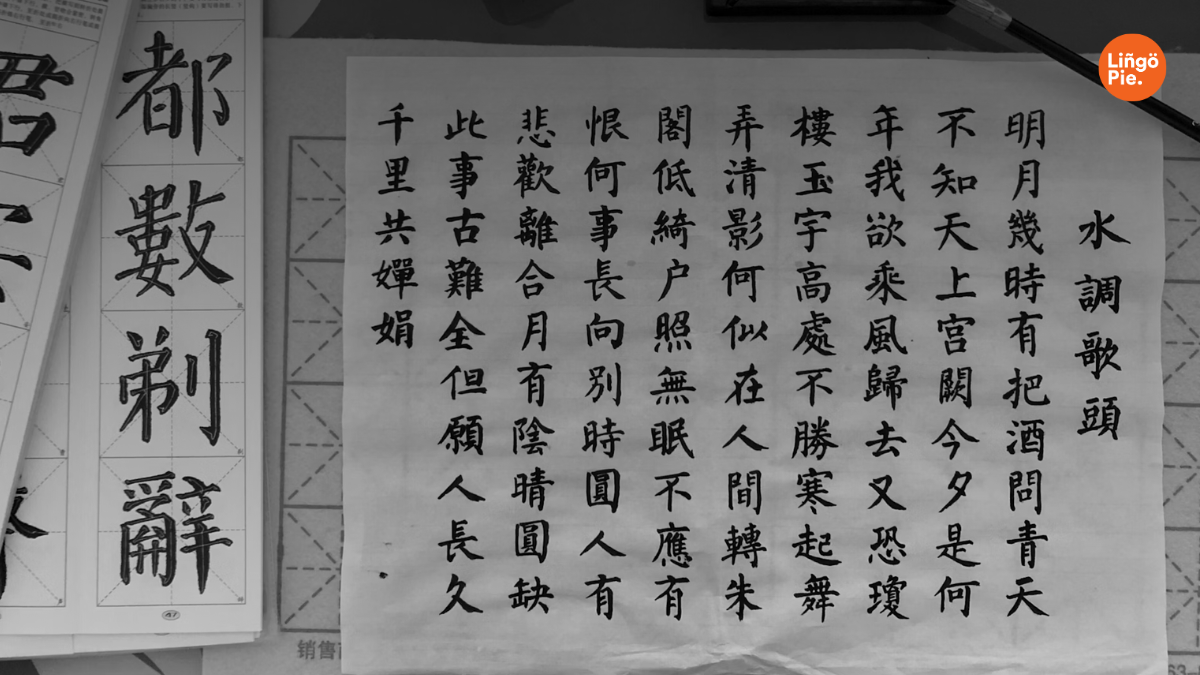 Liñgö
Pie.
水調歌頭
明月幾時有把酒問青天
不知天上宮闕今夕是何
年我欲乘風歸去又恐瓊
樓玉宇高處不勝寒起舞
弄清影何似在人間轉朱
閣低綺户照無眠不應有
恨何事長向別時圓人有
悲歡離合月有陰晴圓缺
此事古難全但願人長久
千里共嬋娟
都數剃辭
销售